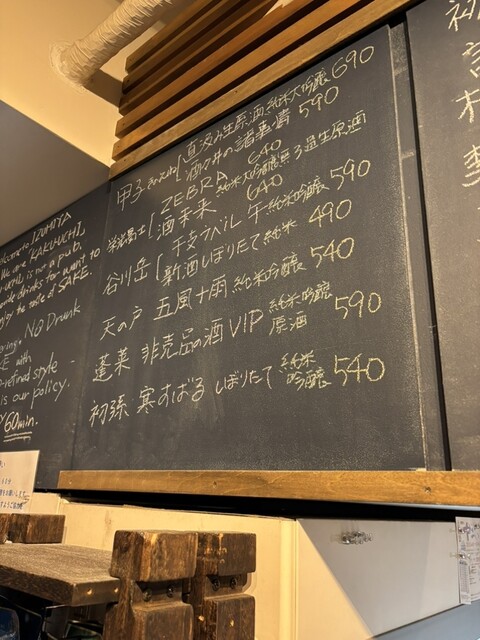 Welcome to IZUMIYA
We are "KAKUUCHI,"
is not a pub.
drinks for want to
enjoy the taste of SAKE.
NO Drunk
with
refined style
is our policy.
60min.
甲子 直汲み生原酒 純米大吟醸 690
酒々井の 590
ZEBRA 640
純米大吟醸 無ろ過生原酒
酒未来 640
谷川岳 干支ラベル 午 純米吟醸 590
新酒しぼりたて 純米 490
天の戸 五風十雨 純米吟醸 540
蓬莱 非売品の酒 VIP 純米吟醸 原酒 590
初孫 寒すばる しぼりたて 純米吟醸 540
初